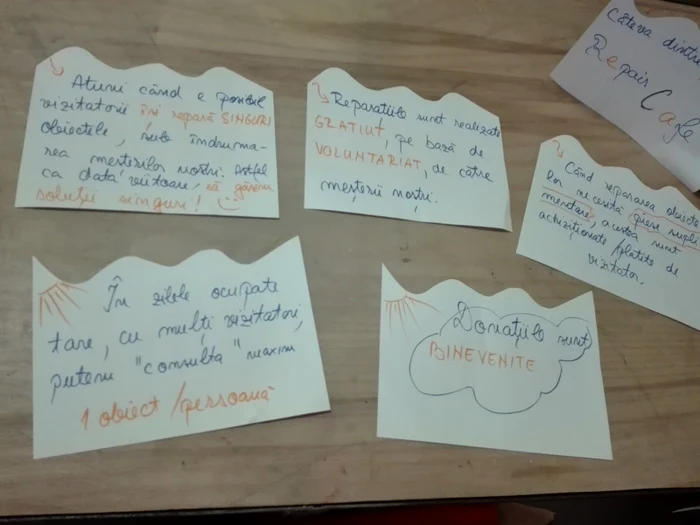 Atunci când e posibil
vizitatorii își repară SINGURI
obiectele, sub îndruma-
rea meșterilor noștri. Astfel
ca data viitoare, să găsim
soluții singuri!
Reparațiile sunt realizate
GRATIUT, pe bază de
VOLUNTARIAT, de către
meșterii noștri.
Câteva dintre
Repair
Cafe
Când repararea obiecte
lor necesită piese supli
mentare, acestea sunt
achiziționate/plătite de
vizitator.
În zilele ocupate
tare, cu mulți vizitatori,
putem "consulta" maxim
1 obiect/persoană
Donațiile sunt
BINEVENITE